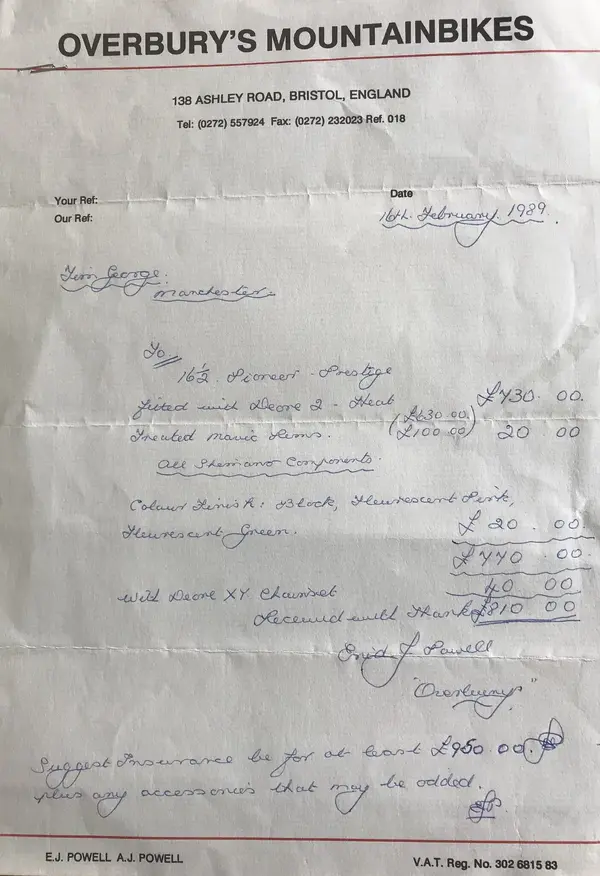 OVERBURY'S MOUNTAINBIKES
138 ASHLEY ROAD, BRISTOL, ENGLAND
Tel: (0272) 557924 Fax: (0272) 232023 Ref. 018
Your Ref:
Date
Our Ref:
16th. February. 1989.
Tim George.
Manchester.
To
16½. Pioneer - Prestige
fitted with Deore 2 - Heat £730. 00.
(£630.00.)
Treated Mavic Rims. (£100.00) 20 00
All Shemano Components.
Colour Finish: Black, Fleurescent Pink,
Fleurescent Green. £ 20. 00.
£770. 00.
40 00
with Deore XT Chainset
Received with Thanks £810 00
Enid J. Powell
"Overburys"
Suggest Insurance be for at least £950.00.
plus any accessories that may be added.
E.J. POWELL A.J. POWELL
V.A.T. Reg. No. 302 6815 83